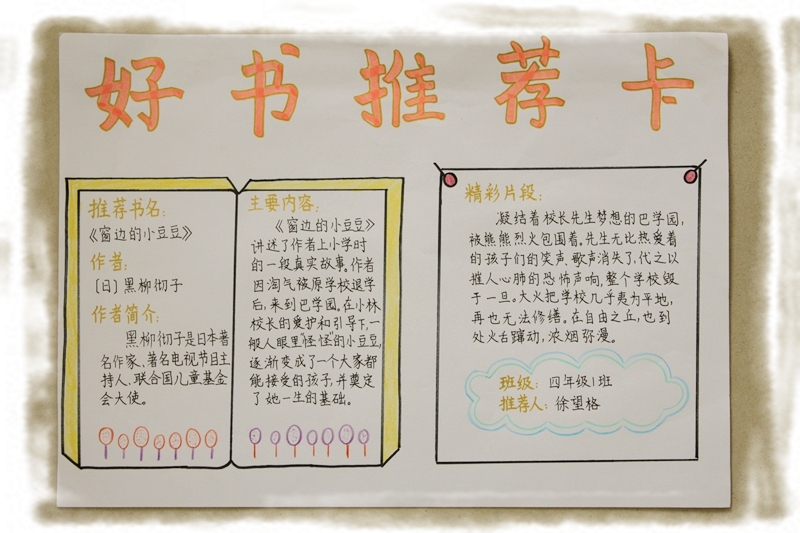 好书推荐卡
推荐书名：
《窗边的小豆豆》
作者：
〔日〕黑柳彻子
作者简介：
黑柳彻子是日本著
名作家、著名电视节目主
持人、联合国儿童基金
会大使。
主要内容：
《窗边的小豆豆》
讲述了作者上小学时
的一段真实故事。作者
因淘气被原学校退学
后，来到巴学园。在小林
校长的爱护和引导下,一
般人眼里"怪怪"的小豆豆,
逐渐变成了一个大家都
能接受的孩子,并奠定
了她一生的基础。
精彩片段：
凝结着校长先生梦想的巴学园，
被熊熊烈火包围着。先生无比热爱着
的孩子们的笑声、歌声消失了,代之以
摧人心肺的恐怖声响,整个学校毁
于一旦。大火把学校几乎夷为平地，
再也无法修缮。在自由之丘，也到
处火舌蹿动，浓烟弥漫。
班级：四年级1班
推荐人：徐望格